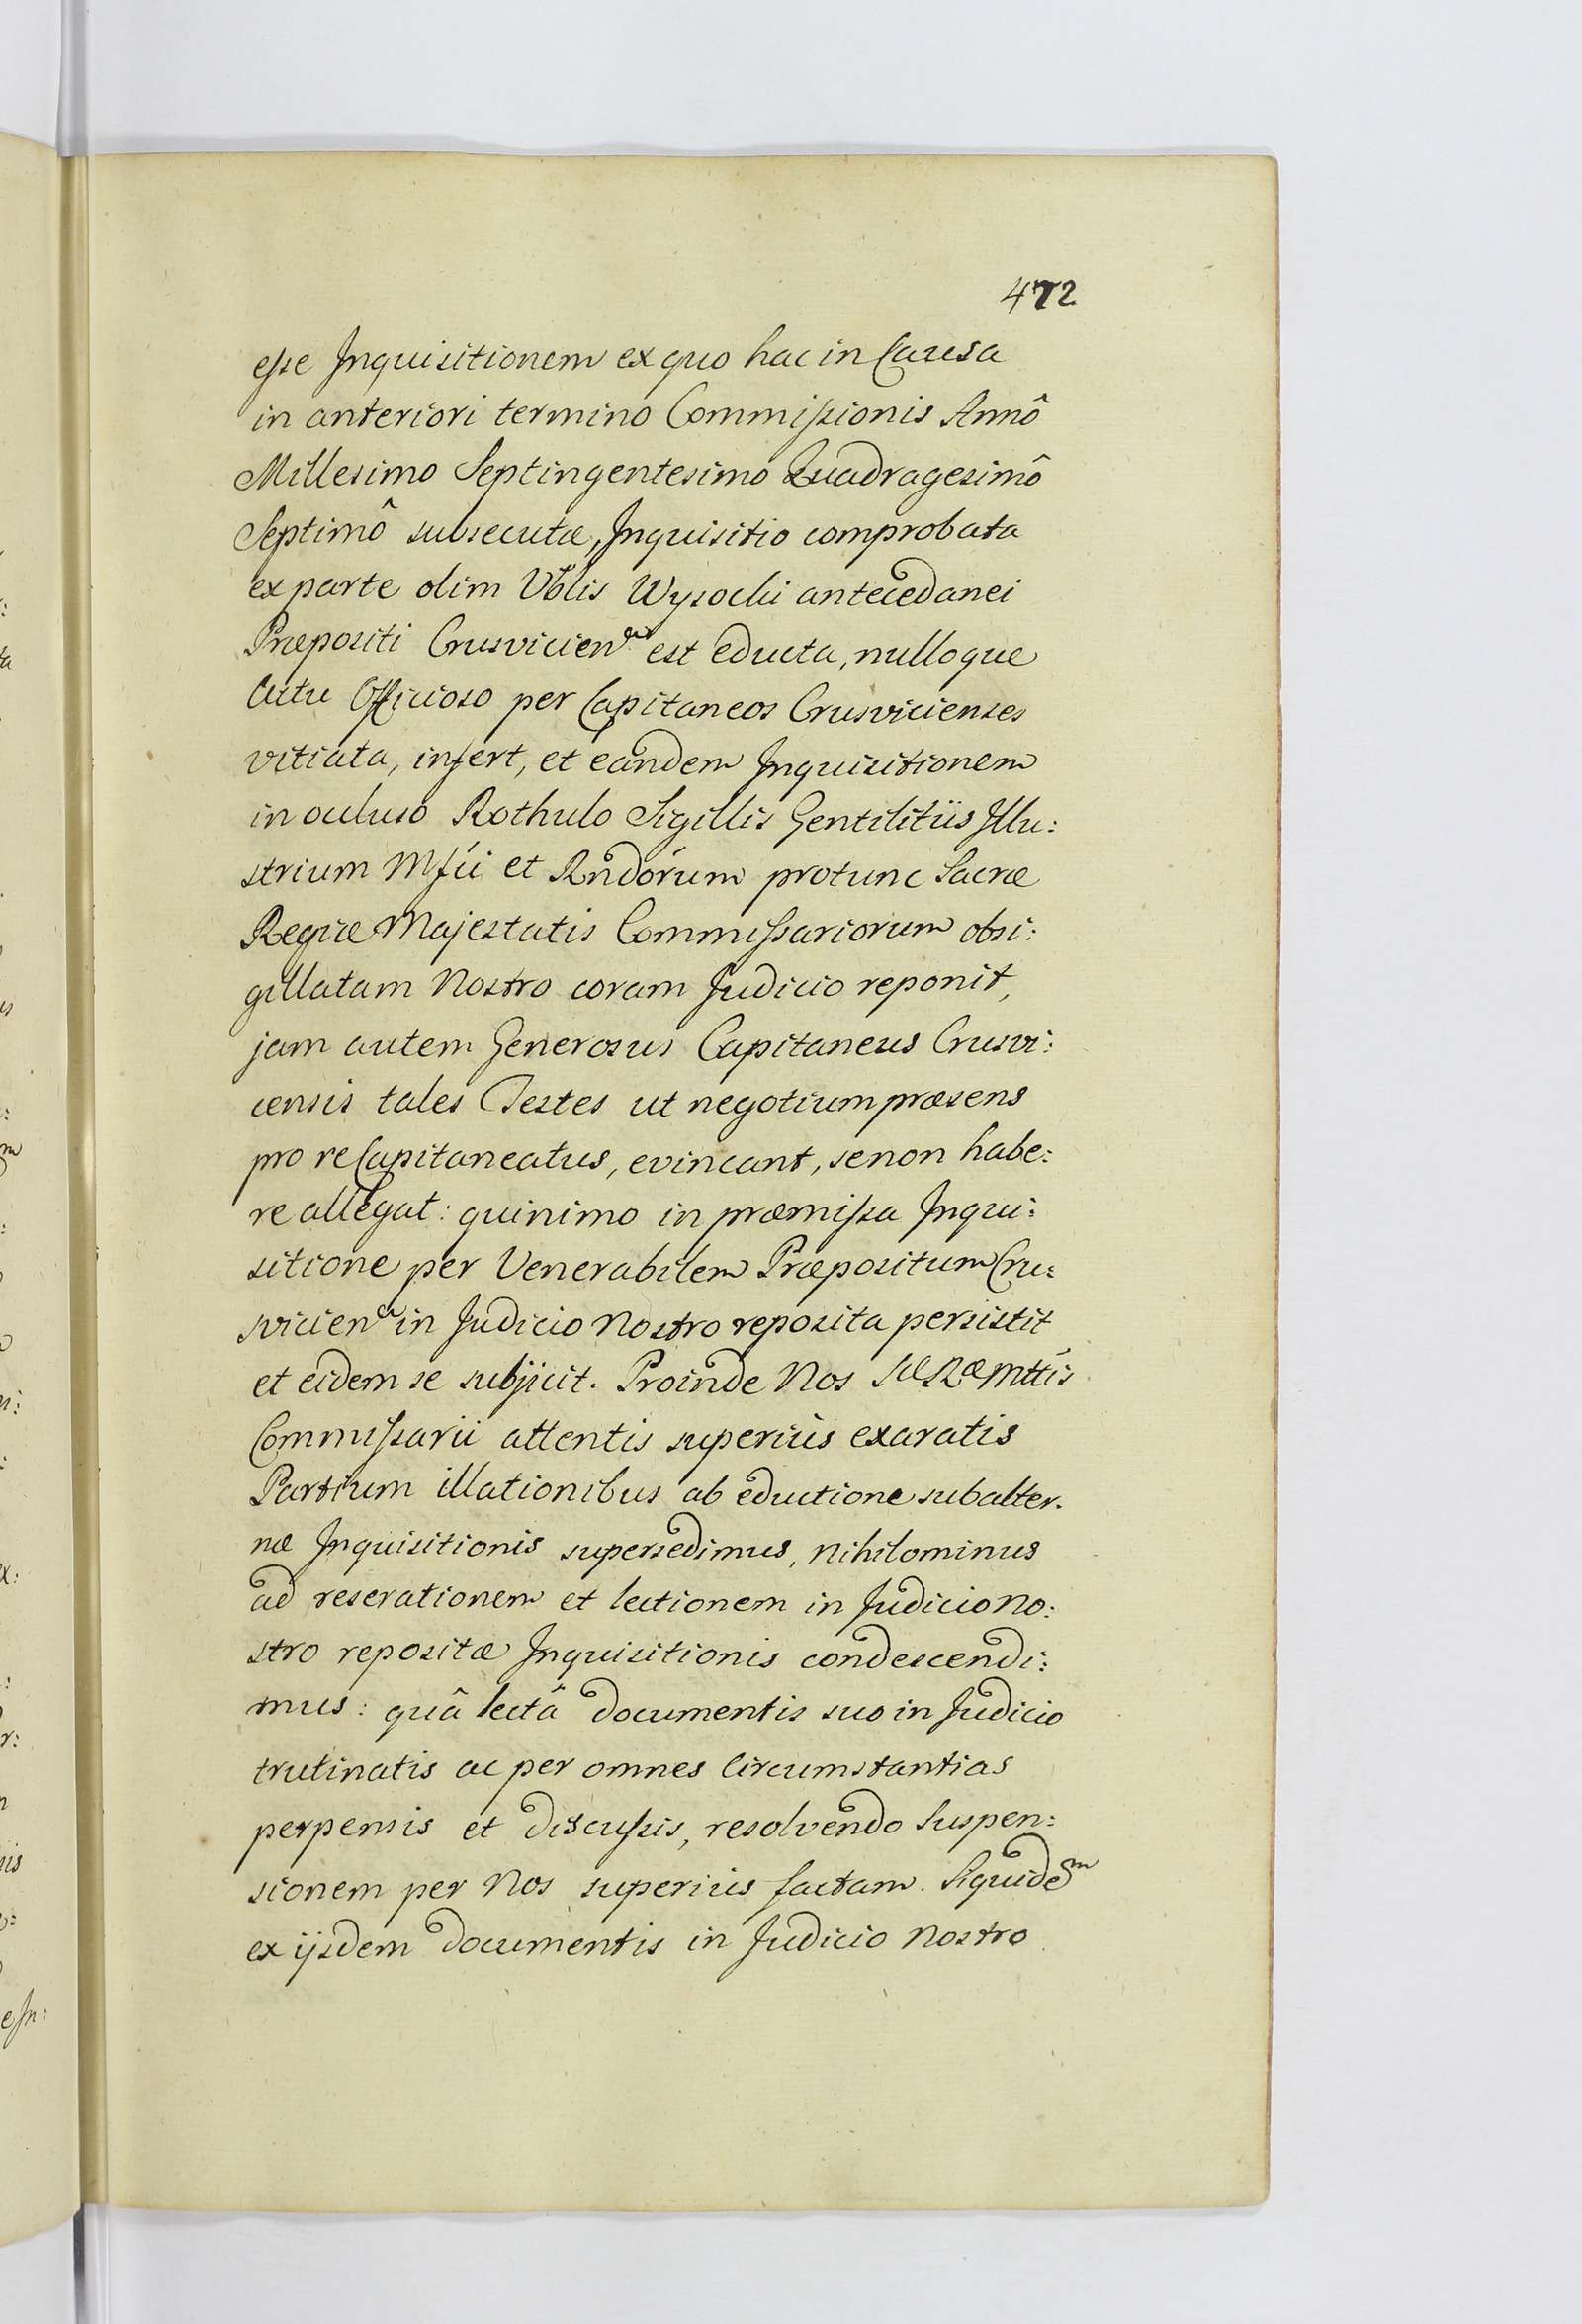 472
esse Inquisitionem ex quo hac in Causa
in anteriori termino Commissionis Annô
Millesimo Septingentesimo Quadragesimô
Septimô subsecutæ, Inquisitio comprobata
ex parte olim Vblis Wysocki antecedanei
Præpositi Crusvicien est educta, nulloque
Actu Officioso per Capitaneos Crusvicienses
vitiata, infert, et eandem Inquisitionem
in occluso Rothulo Sigillis Gentilitiis Illu:
strium Mfci et Rndorum protunc Sacræ
Regiæ Majestatis Commissariorum obsi:
gillatam Nostro coram Judicio reponit,
jam autem Generosus Capitaneus Crusvi:
censis tales Testes ut negotium præsens
pro re Capitaneatus, evincant, se non habe:
re allegat: quinimo in præmissa Inqui:
sitione per Venerabilem Præpositum Cru:
svicien in Judicio Nostro reposita persistit
et eidem se subjicit. Proinde Nos SæRæMttis
Commissarii attentis superiùs exaratis
Partium illationibus ab eductione subalter.
næ Inquisitionis supersedimus, nihilominus
ad reserationem et lectionem in Judicio No:
stro repositæ Inquisitionis condescendi:
mus: quâ lectâ documentis suo in Judicio
trutinatis ac per omnes Circumstantias
perpensis et discussis, resolvendo Suspen:
sionem per Nos superiùs factam. Siquidem
ex iisdem documentis in Judicio Nostro